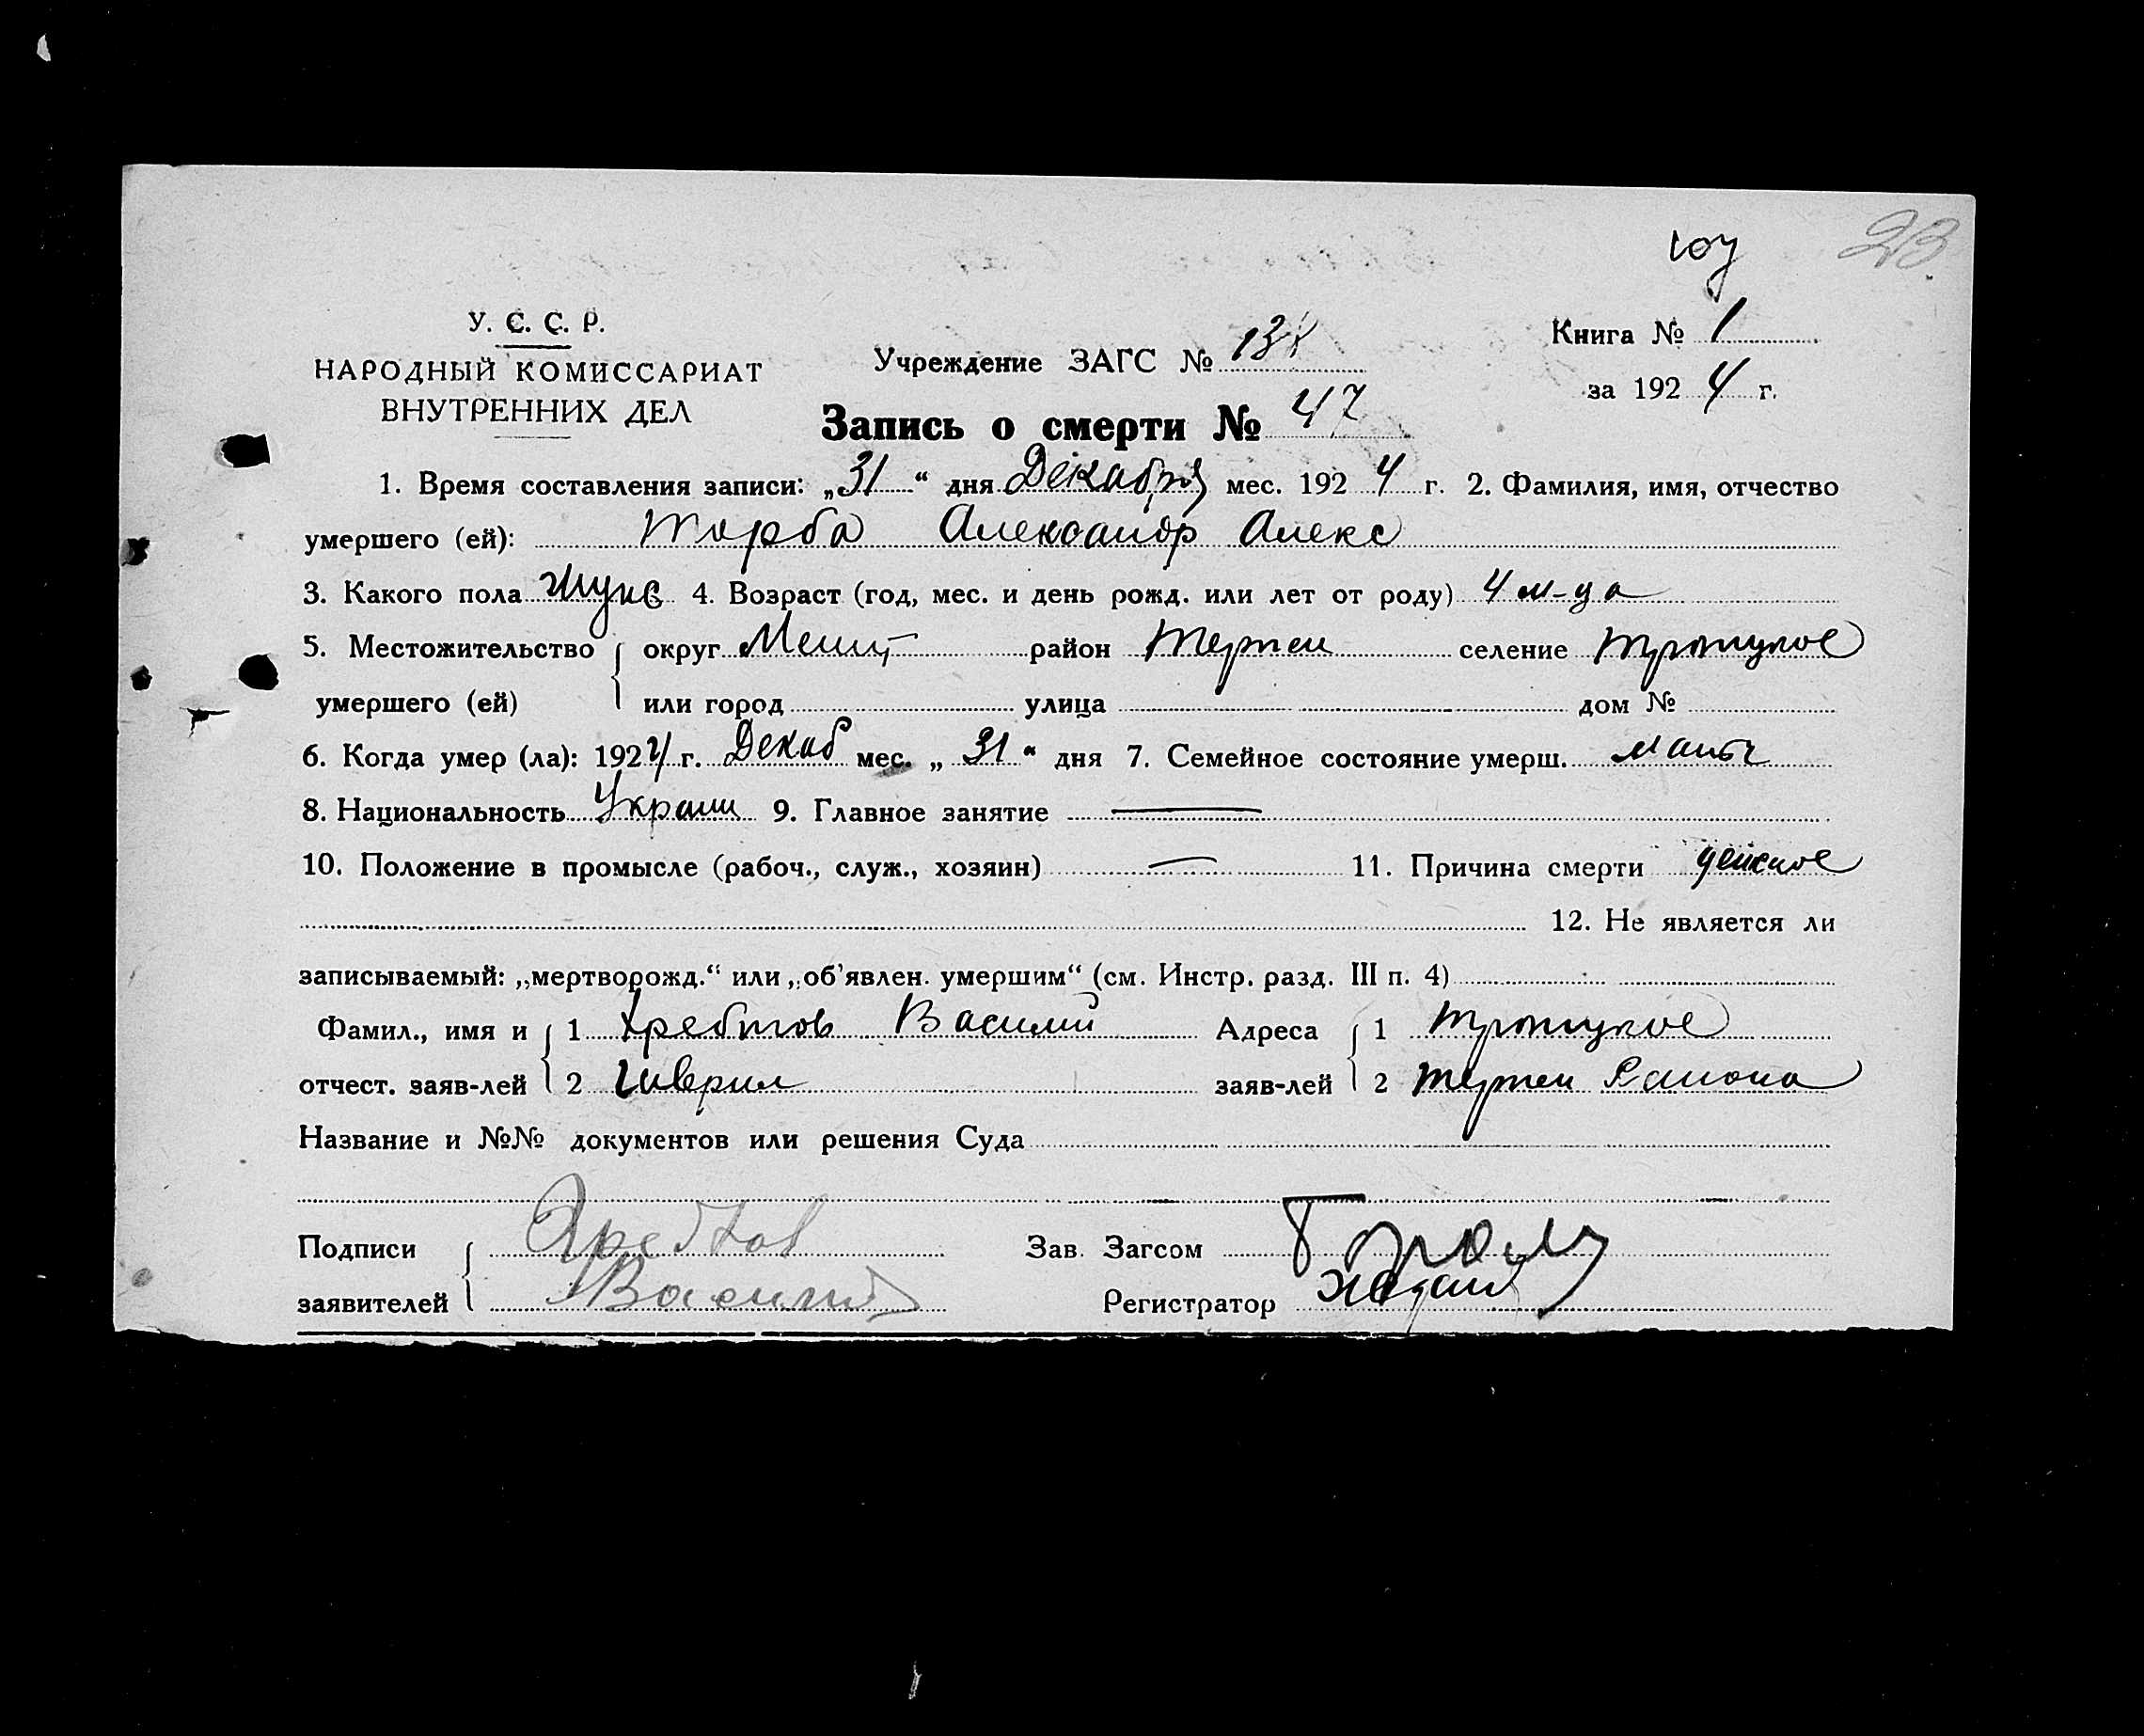 23
У. С. С. Р.
НАРОДНЫЙ КОМИССАРИАТ
ВНУТРЕННИХ ДЕЛ
Учреждение ЗАГС №
Книга № 1
за 1924 г.
Запись о смерти № 47
1. Время составления записи: „31“ дня Декабря мес. 1924 г. 2. Фамилия, имя, отчество
умершего (ей): Торба Александр Алекс
3. Какого пола мужс 4. Возраст (год, мес. и день рожд. или лет от роду) 4 м-ца
5. Местожительство округ Мелит район Терпен селение Троицкое
умершего (ей) или город улица дом №
6. Когда умер (ла): 1924 г. Декаб мес. „31“ дня 7. Семейное состояние умерш.
8. Национальность Украин 9. Главное занятие —
10. Положение в промысле (рабоч., служ., хозяин) — 11. Причина смерти
12. Не является ли
записываемый: „мертворожд.“ или „об'явлен. умершим“ (см. Инстр. разд. III п. 4)
Фамил., имя и 1 Хребтов Василий Адреса 1 Троицкое
отчест. заяв-лей 2 Гаврил заяв-лей 2 Терпен Раиона
Название и №№ документов или решения Суда
Подписи Хребтов Зав. Загсом
заявителей Василий Регистратор